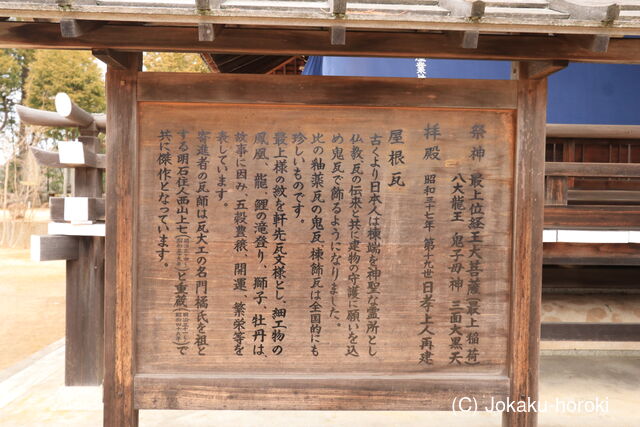 祭神 最上位経王大菩薩(最上稲荷)
八大龍王 鬼子母神 三面大黒天
拝殿 昭和三十七年 第十九世日孝上人再建
屋根瓦
古くより日本人は棟端を神聖な霊所とし
仏教、瓦の伝来と共に建物の守護に願いを込
め鬼瓦で飾るようになりました。
此の釉薬瓦の鬼瓦、棟飾瓦は全国的にも
珍しいものです。
最上様の紋を軒先瓦文様とし、細工物の
鳳凰、龍、鯉の滝登り、獅子、牡丹は、
故事に因み、五穀豊穣、開運、繁栄等を
表しています。
寄進者の瓦師は瓦大工の名門橘氏を祖と
する明石住人西山上七
と重蔵
で
共に傑作となっています。
(C) Jokaku-horoki